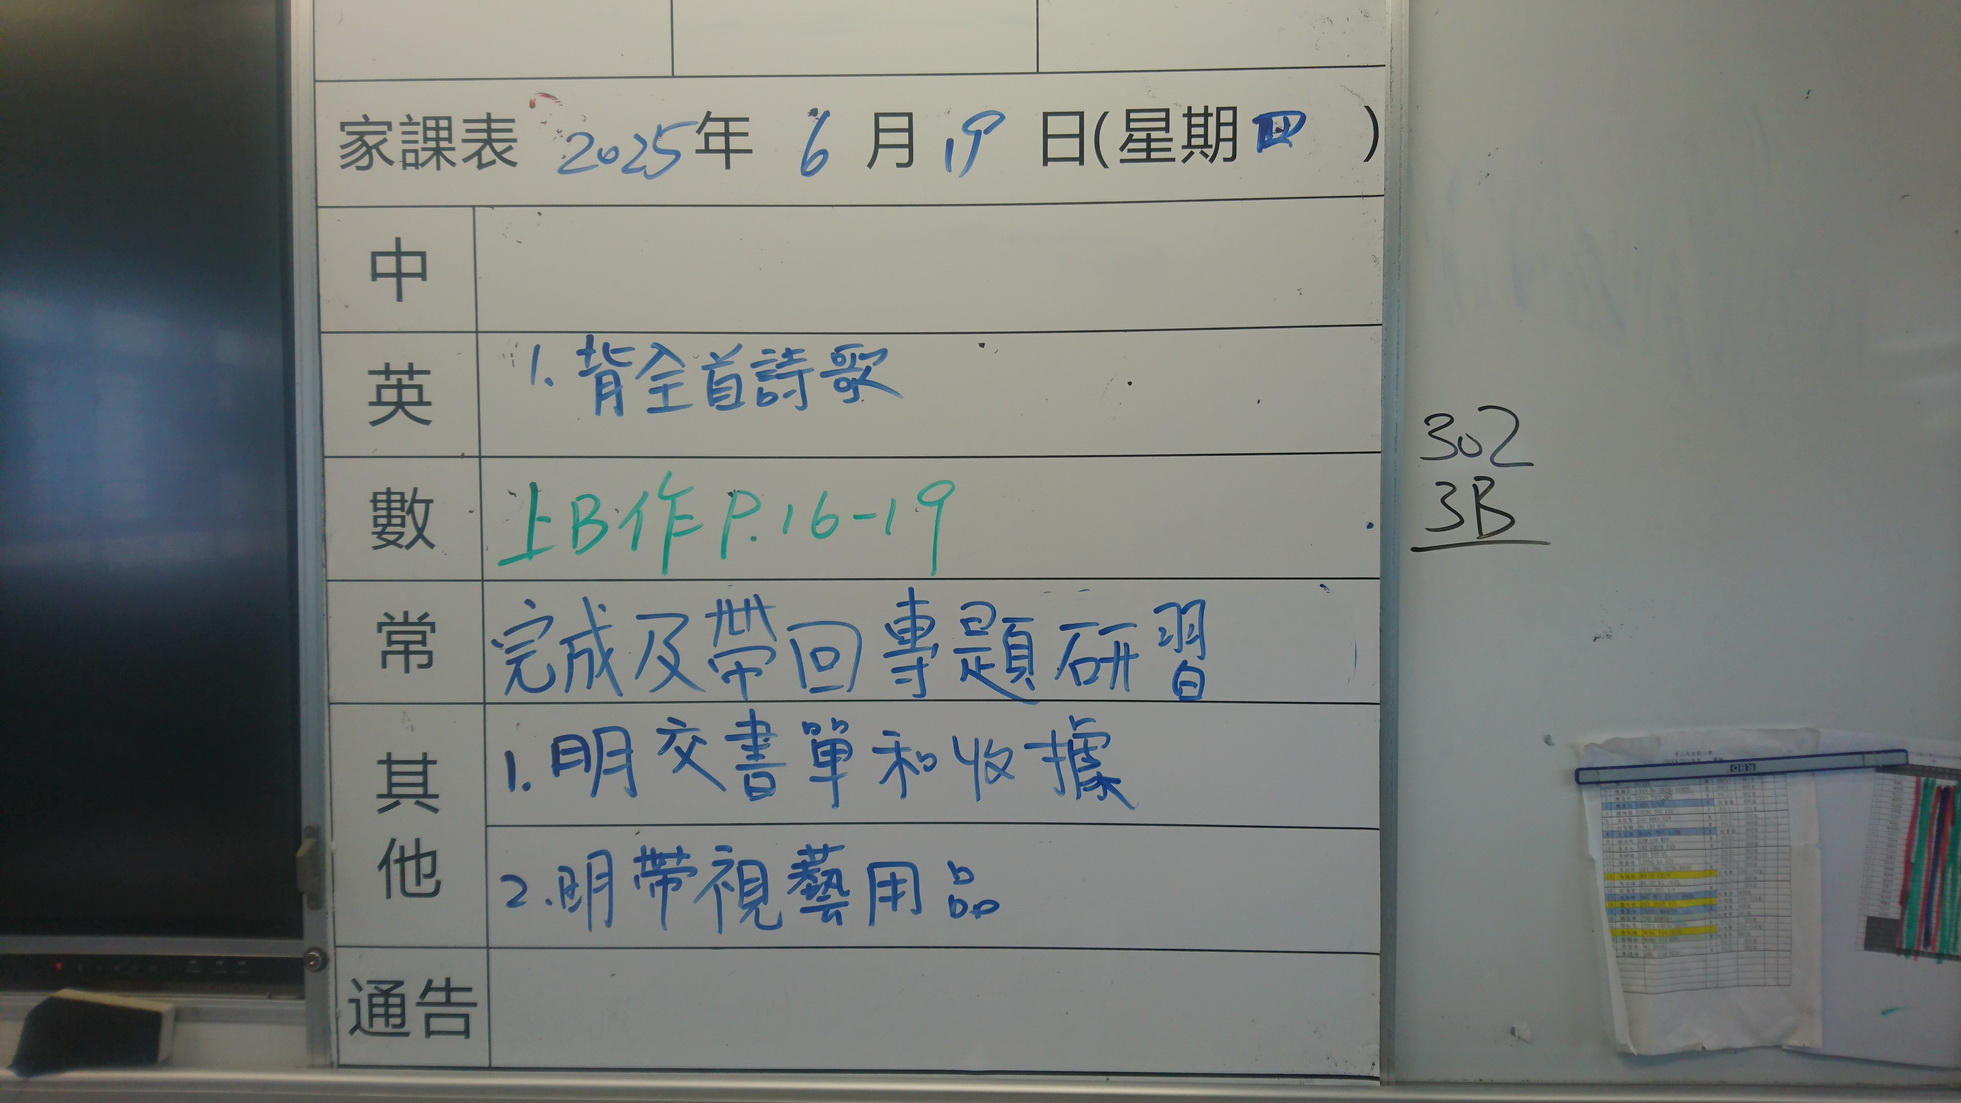 家課表 2025年 6月19日(星期四)
中
英 1. 背全首詩歌
數 上B作 P.16-19
常 完成及帶回專題研習
其他 1. 明交書單和收據
2. 明帶視藝用品
通告
302
3B